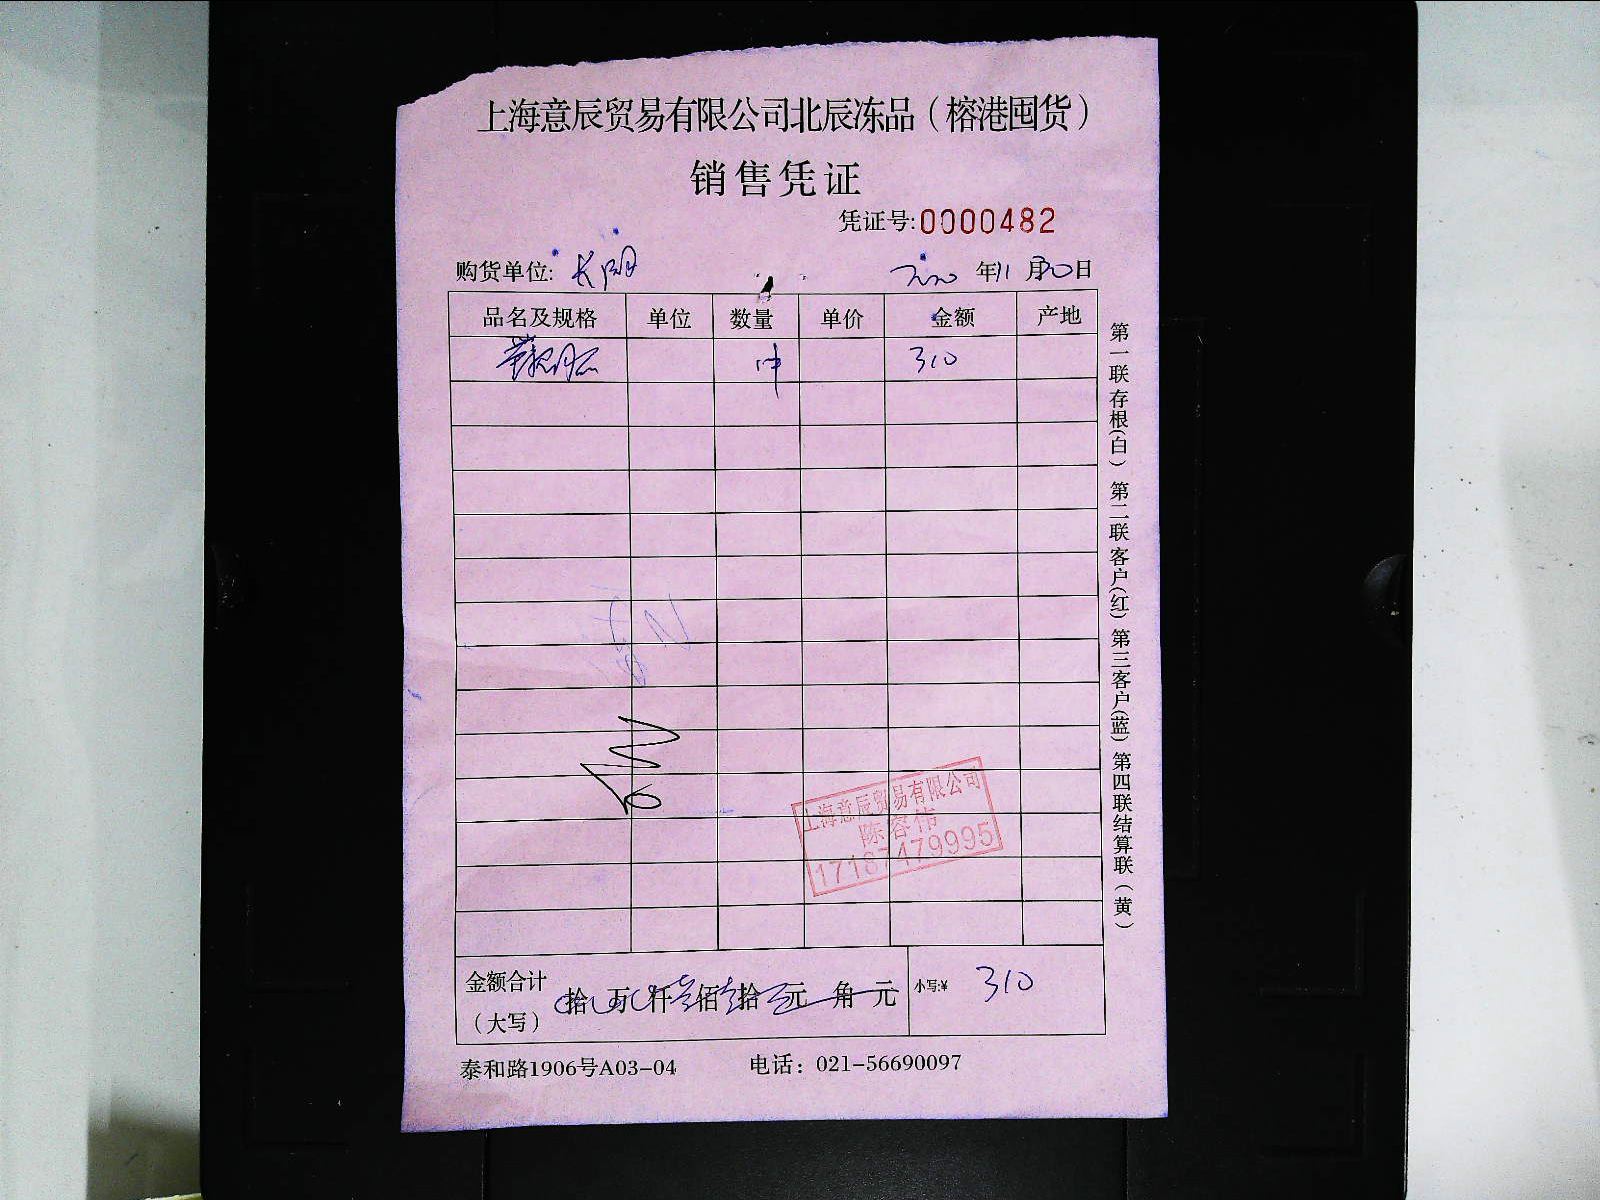 上海意辰贸易有限公司北辰冻品（榕港囤货）
销售凭证
凭证号:0000482
购货单位: 长阳 2020 年11月30日
品名及规格 单位 数量 单价 金额 产地
1件 310
上海意辰贸易有限公司
陈容伟
17187479995
金额合计（大写） 拾 万 仟叁佰壹拾 元 角 元 小写:¥ 310
泰和路1906号A03-04 电话：021-56690097
第一联存根(白) 第二联客户(红) 第三客户(蓝) 第四联结算联（黄）